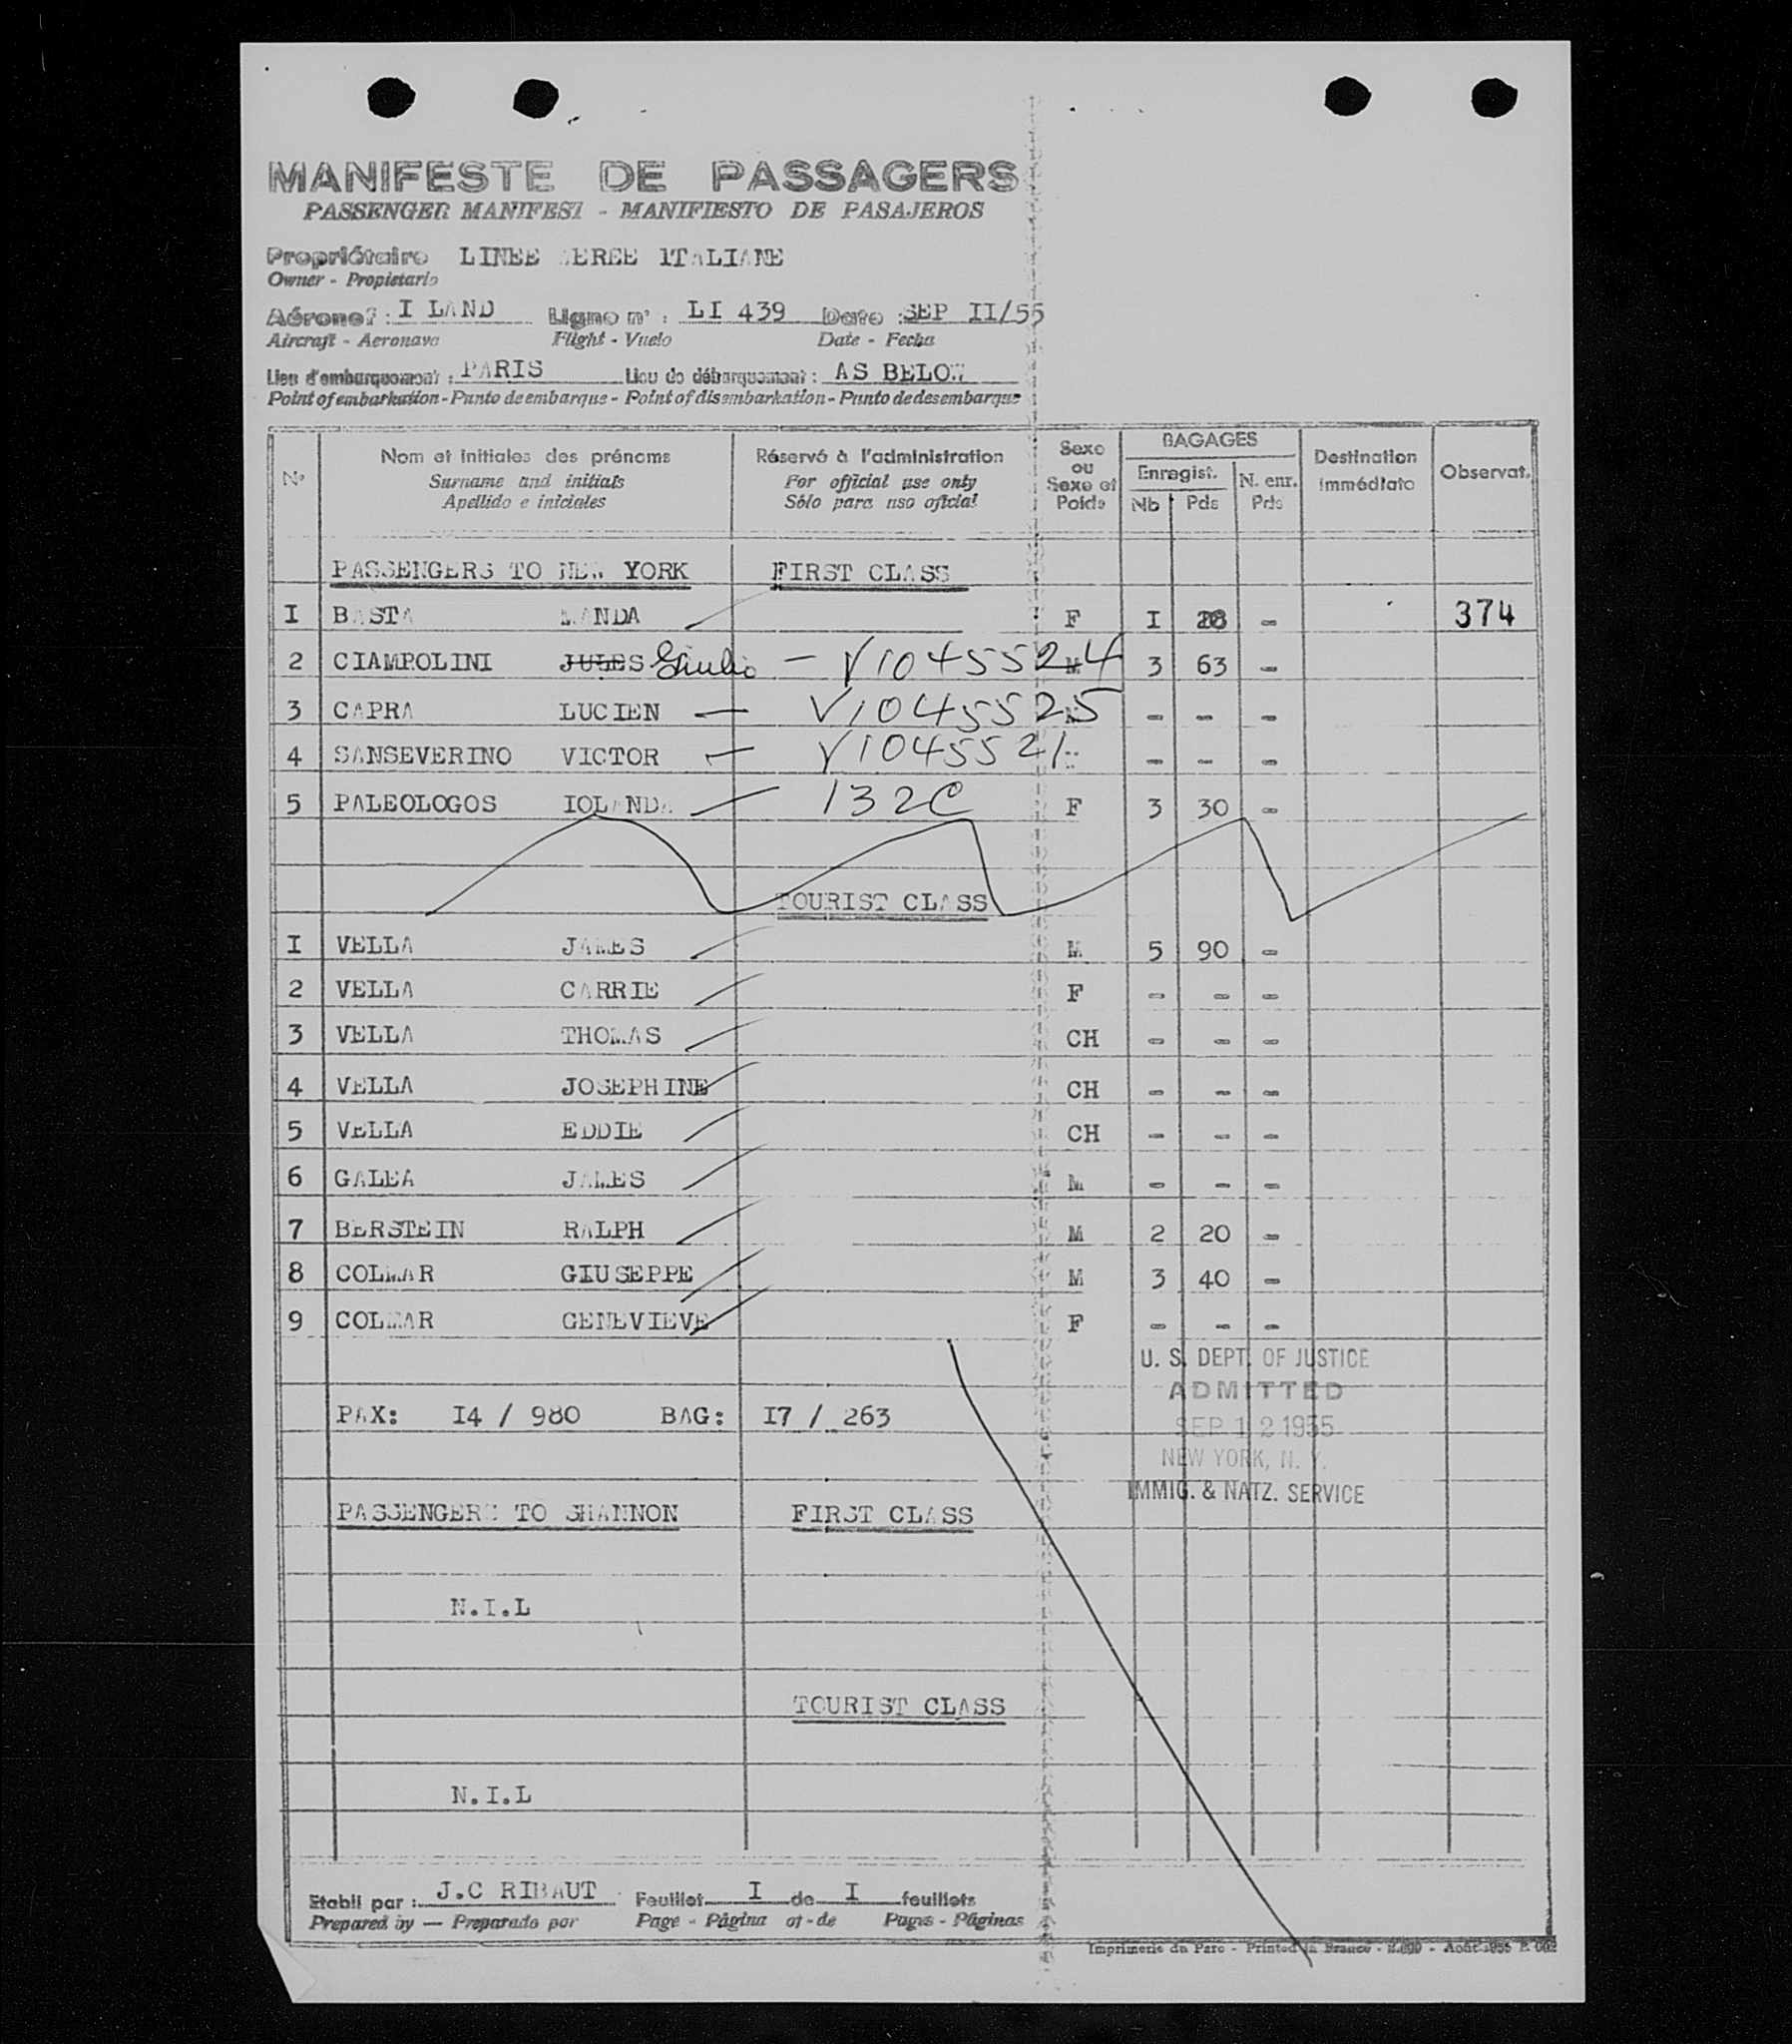 MANIFESTE DE PASSAGERS
PASSENGER MANIFEST - MANIFIESTO DE PASAJEROS
Propriétaire LINEE AEREE ITALIANE
Owner - Propietario
Aéronef : I LAND Ligne n° : LI 439 Date : SEP II/55
Aircraft - Aeronave Flight - Vuelo Date - Fecha
Lieu d'embarquement : PARIS Lieu de débarquement : AS BELOW
Point of embarkation - Punto de embarque - Point of disembarkation - Punto de desembarque
N° Nom et initiales des prénoms Réservé à l'administration Sexe ou Sexe et Poids BAGAGES Destination immédiate Observat.
Surname and initials For official use only Enregist. N. enr.
Apellido e iniciales Sólo para uso oficial Nb Pds Pds
PASSENGERS TO NEW YORK FIRST CLASS
I BASTA WANDA F I - 374
2 CIAMPOLINI JULES Giulio - V1045524 M 3 63 -
3 CAPRA LUCIEN - V1045525 - - -
4 SANSEVERINO VICTOR - V1045521 - - -
5 PALEOLOGOS IOLANDA 132C F 3 30 -
TOURIST CLASS
I VELLA JAMES M 5 90 -
2 VELLA CARRIE F - - -
3 VELLA THOMAS CH - - -
4 VELLA JOSEPHINE CH - - -
5 VELLA EDDIE CH - - -
6 GALEA JAMES M - - -
7 BERSTEIN RALPH M 2 20 -
8 COLMAR GIUSEPPE M 3 40 -
9 COLMAR GENEVIEVE F - - -
U. S. DEPT. OF JUSTICE
ADMITTED
PAX: I4 / 980 BAG: I7 / 263
SEP 12 1955
NEW YORK, N. Y.
IMMIG. & NATZ. SERVICE
PASSENGERS TO SHANNON FIRST CLASS
N.I.L
TOURIST CLASS
N.I.L
Etabli par : J.C RIBAUT Feuillet I de I feuillets
Prepared by — Preparado por Page - Página of - de Pages - Páginas
Imprimerie du Parc - Printed in France - Août 1955